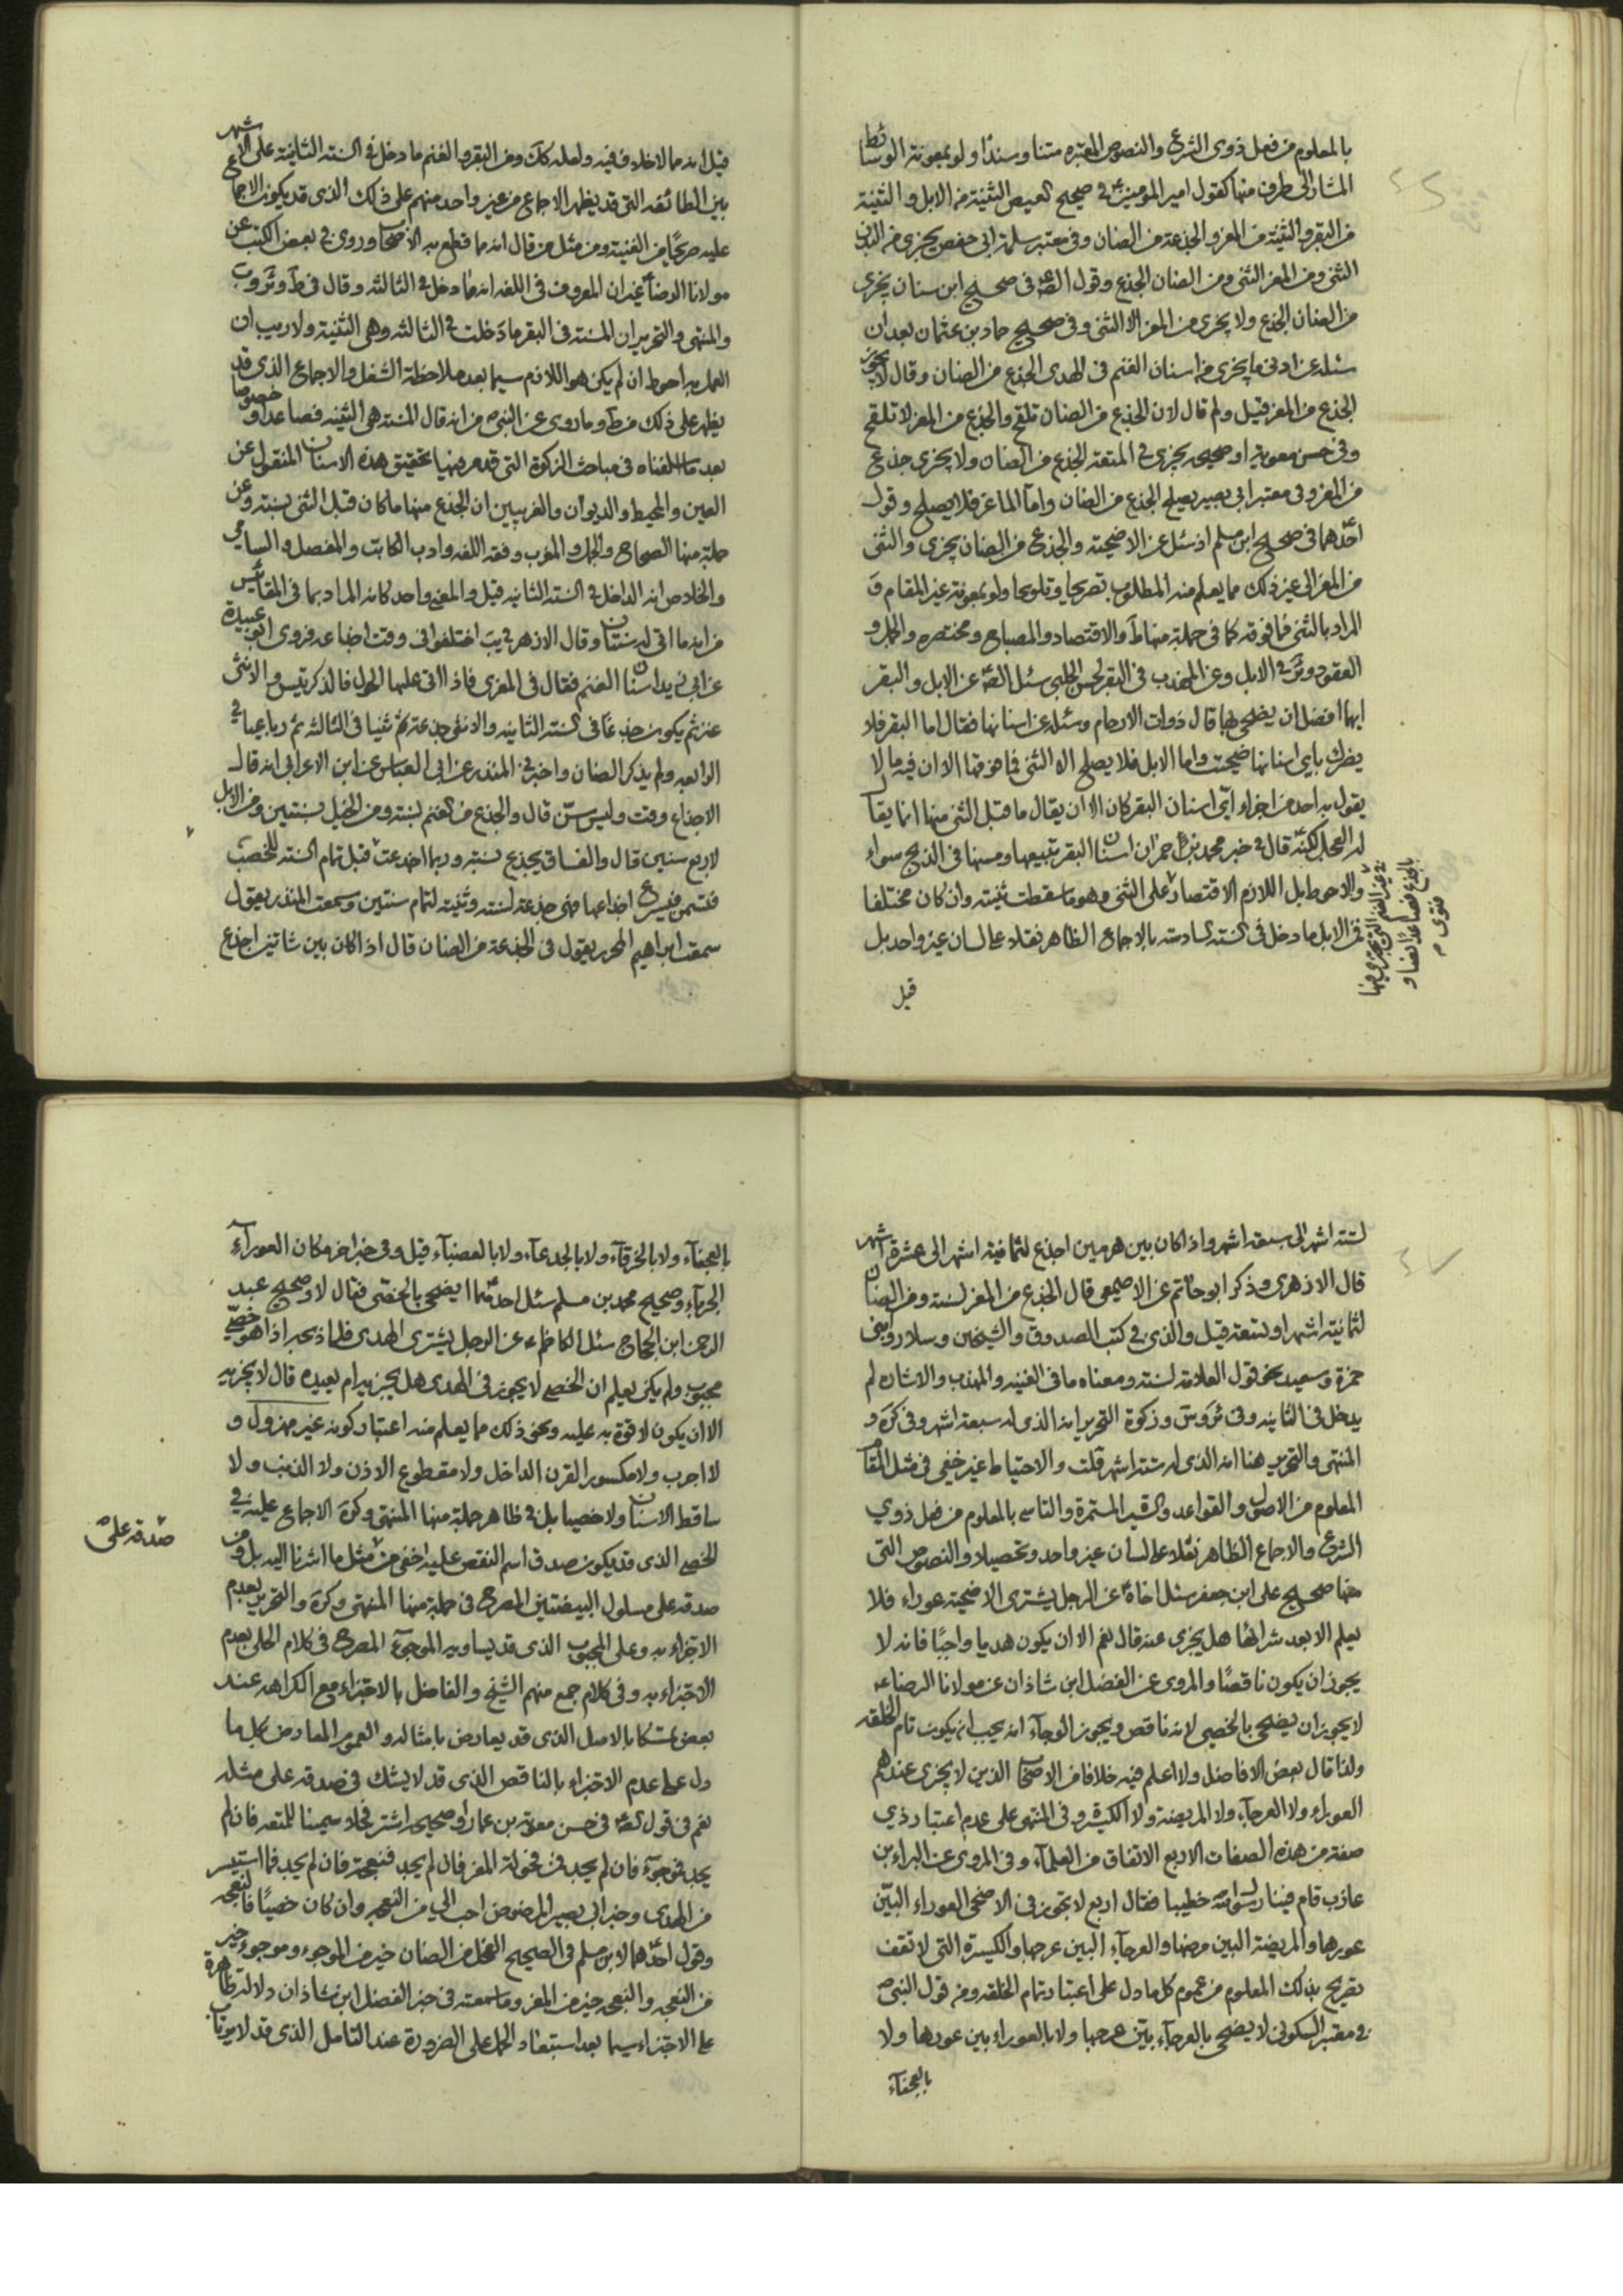 بالمعلوم من فعل ذوى الشرع والنصوص المعتبره متنا وسندًا ولو بمعونة الوسائط
المشار الى طرف منها كقول امير المومنين ع في صحيح العيص الثنيّة من الابل والثنيّة
من البقر والثنيّة من المعز والجذعة من الضان وفي معتبر سلمة ابى حفص يجزى من البدن
الثنى ومن المعز الثنى ومن الضان الجذع وقول الصّ ع فى صحيح ابن سنان يجزى
من الضان الجذع ولا يجزى من المعز الا الثنى وفى صحيح حماد بن عثمان بعد ان
سئله عن ادنى ما يجزى من اسنان الغنم فى الهدى الجذع من الضان وقال لا يجوز
الجذع من المعز قيل ولم قال لان الجذع من الضان تلقح والجذع من المعز لا تلقح
وفى حسن معوية او صحيحه يجزى فى المتعة الجذع من الضان ولا يجزى جذع
من المعز وفى معتبر ابى بصير يصلح الجذع من الضان وامآ الماعز فلا يصلح وقول
احدّهما فى صحيح ابن مسلم اذ سئل عن الاضحيّة والجذع من الضان يجزى والثنى
من المعز الى غير ذلك مما يعلم منه المطلوب تصريحا وتلويحا ولو بمعونة غير المقام و
المراد بالثنى فما فوقه كما فى جملة منها ط والاقتصاد والمصباح ومختصره والجمل و
العقود وئر فى الابل وعن المهذب فى البقر لحسن الحلبى سئل الصّ ع عن الابل والبقر
ايهما افضل ان يضحى بها قال ذوات الارحام وسئله عن اسنانها فقال اما البقر فلا
يضرك باى اسنانها ضحيت واما الابل فلا يصلح الا الثنى فما فوقها الا ان فيه ما لا
يقول به احد من اجزاء اىّ اسنان البقر كان الا ان يقال ما قبل الثنى منها انما يقال
له العجل لكنّه قال فى خبر محمد بن حمران اسنان البقر تبيعها ومسنها فى الذبح سواء
والاحوط بل اللازم الاقتصار على الثنى وهو ما سقطت ثنيّته وان كان مختلفا
فمن الابل ما دخل فى السّنة السّادسة بالاجماع الظاهر نقلا على لسان غير واحد بل
قيل
فى غير الغنم التى يجتزى منها
بالجذع فصاعدًا نصا و
فتوى م
قيل انه مما لا خلاف فيه ولعله كك ومن البقر والغنم ما دخل فى السّنة الثانية على الاشهر
بين الطائفه التى قد يظهر الاجماع من غير واحد منهم على ذلك الذى قد يكون الاجماع
عليه صريحًا من الغنية ومن مثل من قال انه مما قطع به الاصحاب وروى فى بعض الكتب عن
مولانا الرضا ع غير ان المعروف فى اللغه انه ما دخل فى الثالثه وقال فى ط
والمنتهى والتحرير ان المسنّة فى البقر ما دخلت فى الثالثه وهى الثنيّة ولا ريب ان
العمل به احوط ان لم يكن هو اللازم سيما بعد ملاحظة الشغل والاجماع الذى قد
يظهر على ذلك من ط وما روى عن النبى ص من انه قال المسنة هى الثنية فصاعدًا وخصوصا
بعد ما اسلفناه فى مباحث الزكوة التى قدمر فيها تحقيق هذه الاسنان المنقول عن
العين والمحيط والديوان والغريبين ان الجذع منها ما كان قبل الثنى بسنته وعن
جملة منها الصحاح والجمل والمغرب وفقه اللغه وادب الكاتب والمفصل والسامى
والخلاص انه الداخل فى السّنه الثانيه قيل والمعنى واحد كانه المراد بما فى المقائيس
من انه ما اتى له سنتان وقال الازهرى اختلفوا فى وقت اجذاعه فروى ابو عبيدة
عن ابى زيد اسنان الغنم فقال فى المعزى فاذا اتى عليها الحول فالذكر تيس والانثى
عنز ثم يكون جذعًا فى السّنة الثانيه والانثى جذعة ثم ثنيا فى الثالثه ثم رباعيا فى
الرابعه ولم يذكر الضان واخبرنى المنذرى عن ابى العباس عن ابن الاعرابى انه قال
الاجذاع وقت وليس بسّن قال والجذع من الغنم لسنته ومن الخيل لسنتين ومن الابل
لاربع سنين قال والعناق يجذع لسنته وربما اجذعت قبل تمام السّنه للخصب
فتسمن فيسرع اجذاعها فهى جذعة لسنته وثنية لتمام سنتين وسمعت المنذرى يقول
سمعت ابراهيم الحربى يقول فى الجذعة من الضان قال اذا كان بين شابين اجذع
لستّة اشهر الى سبعة اشهر واذا كان بين هرمين اجذع لثمانية اشهر الى عشرة اشهر
قال الازهرى وذكر ابو حاتم عن الاصمعى قال الجذع من المعز لسنة ومن الضان
لثمانية اشهر او لتسعة قيل والذى فى كتب الصدوق والشيخين وسلار وابنى
حمزة وسعيد نحو قول العلامة لسنة ومعناه ما فى الغنيه والمهذب والاشاره لم
يدخل فى الثانيه وفى ئر وس وزكوة التحرير انه الذى له سبعة اشهر وفى كره و
المنتهى والتحرير هنا انه الذى له ستة اشهر قلت والاحتياط غير خفى فى مثل المقام
المعلوم من الاصول والقواعد والسّيرة المستمرة والتاسى بالمعلوم من فعل ذوي
الشرع والاجماع الظاهر نقلا على لسان غير واحد وتحصيلا والنصوص التى
منها صحيح على ابن جعفر سئل اخاه ع عن الرجل يشترى الاضحية عوراء فلا
يعلم الا بعد شرائها هل يجزى عنه قال نعم الا ان يكون هديا واجبًا فانه لا
يجوز ان يكون ناقصًا والمروى عن الفضل ابن شاذان عن مولانا الرضا ع
لا يجوز ان يضحى بالخصى لانه ناقص ويجوز الوجآء انه يجب ان يكون تام الخلقه
ولذا قال بعض الافاضل ولا اعلم فيه خلافا من الاصحاب الذين لا يجزى عندهم
العوراء ولا العرجآء ولا المريضة ولا الكسيرة وفى المنتهى على عدم اعتبار ذي
صفة من هذه الصفات الاربع الاتفاق من العلمآء وفى المروى عن البراء بن
عازب قام فينا رسول الله خطيبا فقال اربع لا تجوز فى الاضحى العوراء البيّن
عورها والمريضة البين مرضها والعرجآء البين عرجها والكسيرة التى لا تنقف
يصريح بذلك المعلوم من عموم كلما دل على اعتبار تمام الخلقه ومن قول النبى ص
فى معتبر السكونى لا يضحى بالعرجآء بيّن عرجها ولا بالعوراء بين عورها ولا
بالعجفآء
بالعجفآء ولا بالخرقآء ولا بالجدعآء ولا بالعضبآء قيل وفى خبر اخر مكان العورآء
الجربآء وصحيح محمد بن مسلم سئل احدهمّا ايضحى بالخصى فقال لا وصحيح عبد
الرحمن ابن الحجاج سئل الكاظم ع عن الرجل يشترى الهدى فلما ذبحه اذا هو خصىّ
مجبوب ولم يكن يعلم ان الخصى لا يجوز فى الهدى هل يجزيه ام يعيده قال لا يجزيه
الا ان يكون لا قوة به عليه ونحو ذلك مما يعلم منه اعتبار كونه غير مهزول و
لا اجرب ولا مكسور القرن الداخل ولا مقطوع الاذن ولا الذنب ولا
ساقط الاسنان ولا خصيا بل فى ظاهر جملة منها المنتهى وكره الاجماع عليه فى
الخصى الذى قد يكون صدق اسم النقص عليه اخفى من مثل ما اشرنا اليه بل ومن
صدقه على مسلول البيضتين المصرح فى جملة منها المنتهى وكره والتحرير بعدم
الاجتزاء به وعلى المجبوب الذى قد يساويه الموجوء المصرح فى كلام الحلى بعدم
الاجتزاء به وفى كلام جمع منهم الشيخ والفاضل بالاجتزاء مع الكراهه عند
بعض تمسكا بالاصل الذى قد يعارض بامثاله والعموم المعارض بكل ما
دل على عدم الاجتزاء بالناقص الذى قد لا يشك فى صدقه على مثله
نعم فى قول الصّ ع فى حسن معوية بن عمار او صحيحه اشتر فحلا سمينا للمتعه فان لم
يجد فموجوّء فان لم يجد فمن فحولة المعز فان لم يجد فنعجة فان لم يجد فما استيسر
من الهدى وخبر ابى بصير المرضوض احب الى من النعجه وان كان خصيًا فالنعجه
وقول احدّهما لابن مسلم فى الصحيح الفحل من الضان خير من الموجوء وموجوء خير
من النعجه والنعجه خير من المعز وما سمعته فى خبر الفضل ابن شاذان دلالة ظاهرة
على الاجتزاء سيما بعد استبعاد الحمل على الضرورة عند التامل الذى قد لا يرتاب
صدقه على